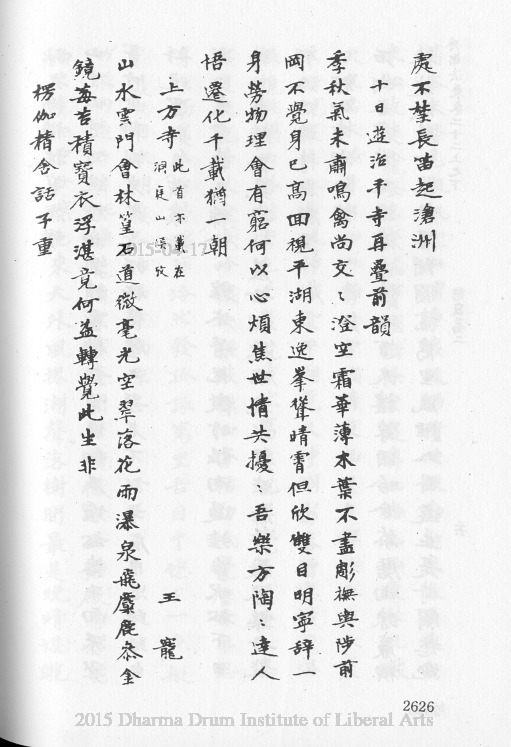 處不楚長笛起滄洲
十日遊治平寺再疊前韻
季秋氣未肅鳴禽尚交〻澄空霜華薄木葉不盡彫撫輿陟前
岡不覺身已高回視平湖東逸峯聳晴霄但欣雙目明寧辭一
身勞物理會有窮何以心煩焦世情共擾〻吾樂方陶〻達人
悟遷化千載猶一朝
上方寺 此首不重在
洞庭山張攷
王寵
山水雲門會林篁石道微毫光空翠落花雨瀑泉飛麋鹿參金
鏡莓苔積寶衣浮湛竟何益轉覺此生非
楞伽精舍話子重
2015-04-17
2626
2015 Dharma Drum Institute of Liberal Arts